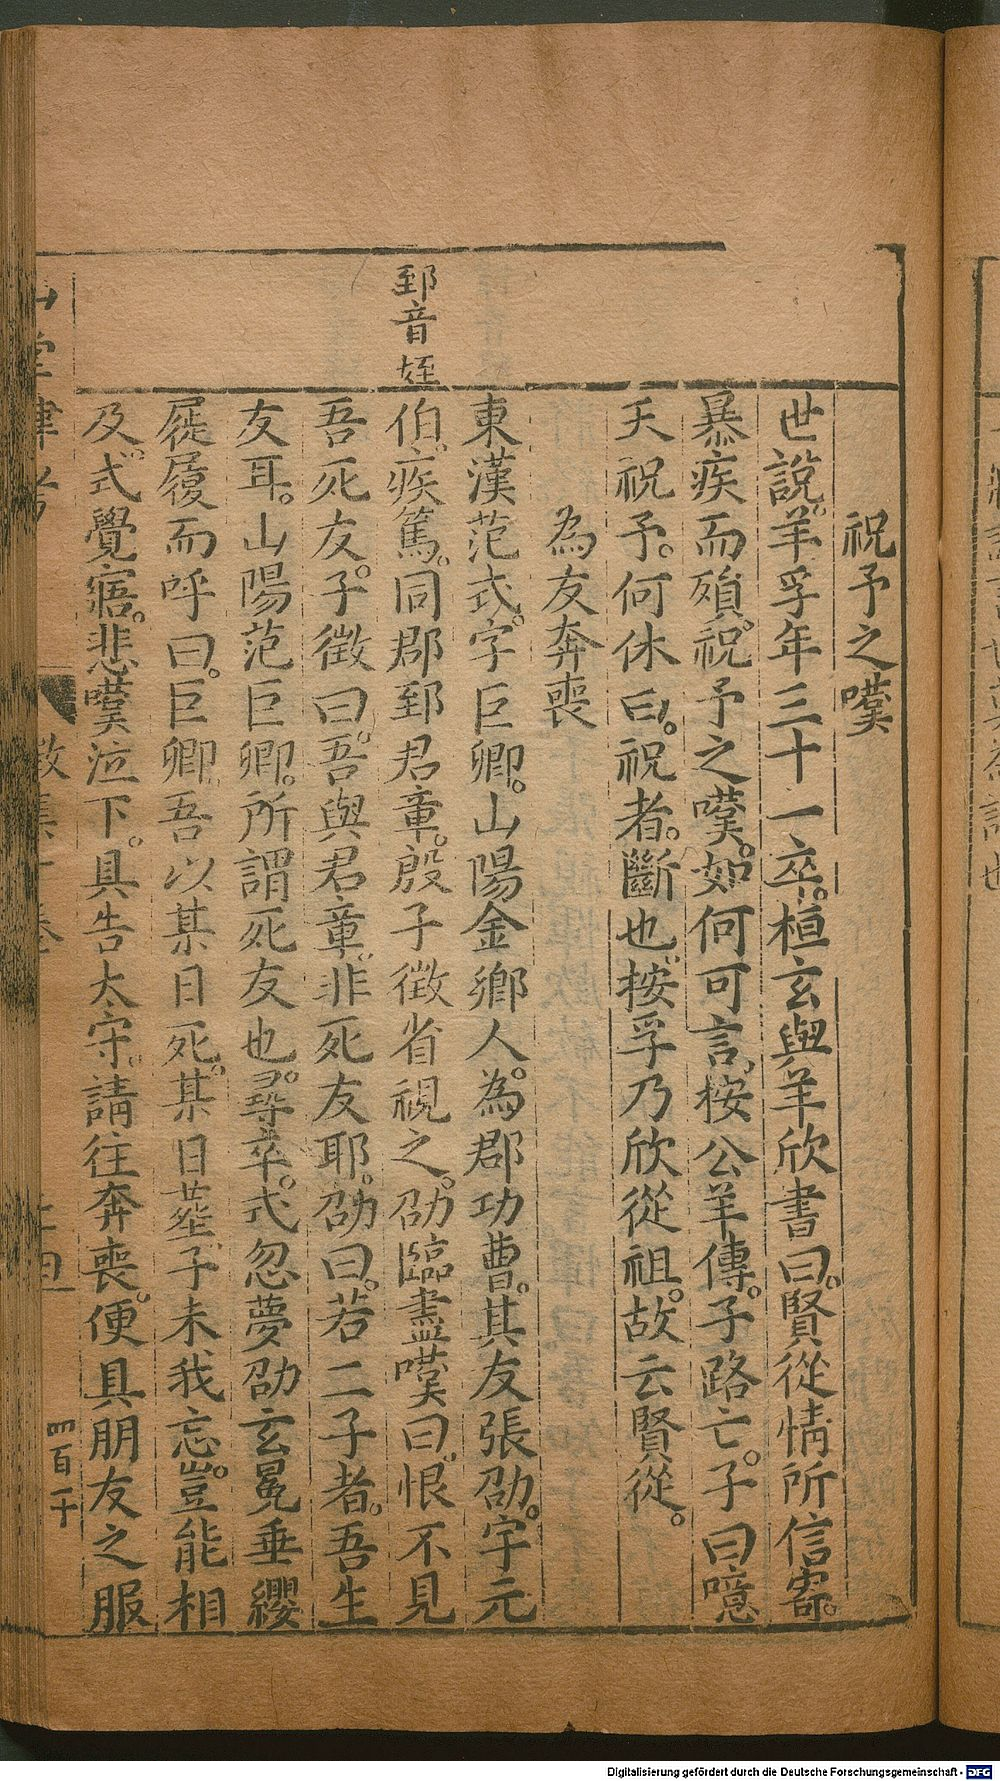 祝予之嘆
世說。羊孚年三十一卒。桓玄與羊欣書曰。賢從情所信寄。
暴疾而殞。祝予之嘆。如何可言。按公羊傳。子路亡。子曰噫
天祝予。何休曰。祝者。斷也。按孚乃欣從祖。故云賢從。
為友奔喪
東漢范式。字巨卿。山陽金鄉人。為郡功曹。其友張劭。字元
伯。疾篤。同郡郅君章。殷子徵省視之。劭臨盡嘆曰。恨不見
吾死友。子徵曰。吾與君章。非死友耶。劭曰。若二子者。吾生
友耳。山陽范巨卿。所謂死友也。尋卒。式忽夢劭玄冕垂纓
屣履而呼曰。巨卿。吾以某日死。某日葬。子未我忘。豈能相
及。式覺寤。悲嘆泣下。具告太守。請往奔喪。便具朋友之服
郅音姪
山堂肆考
徵集
四百千
Digitalisierung gefördert durch die Deutsche Forschungsgemeinschaft - DFG